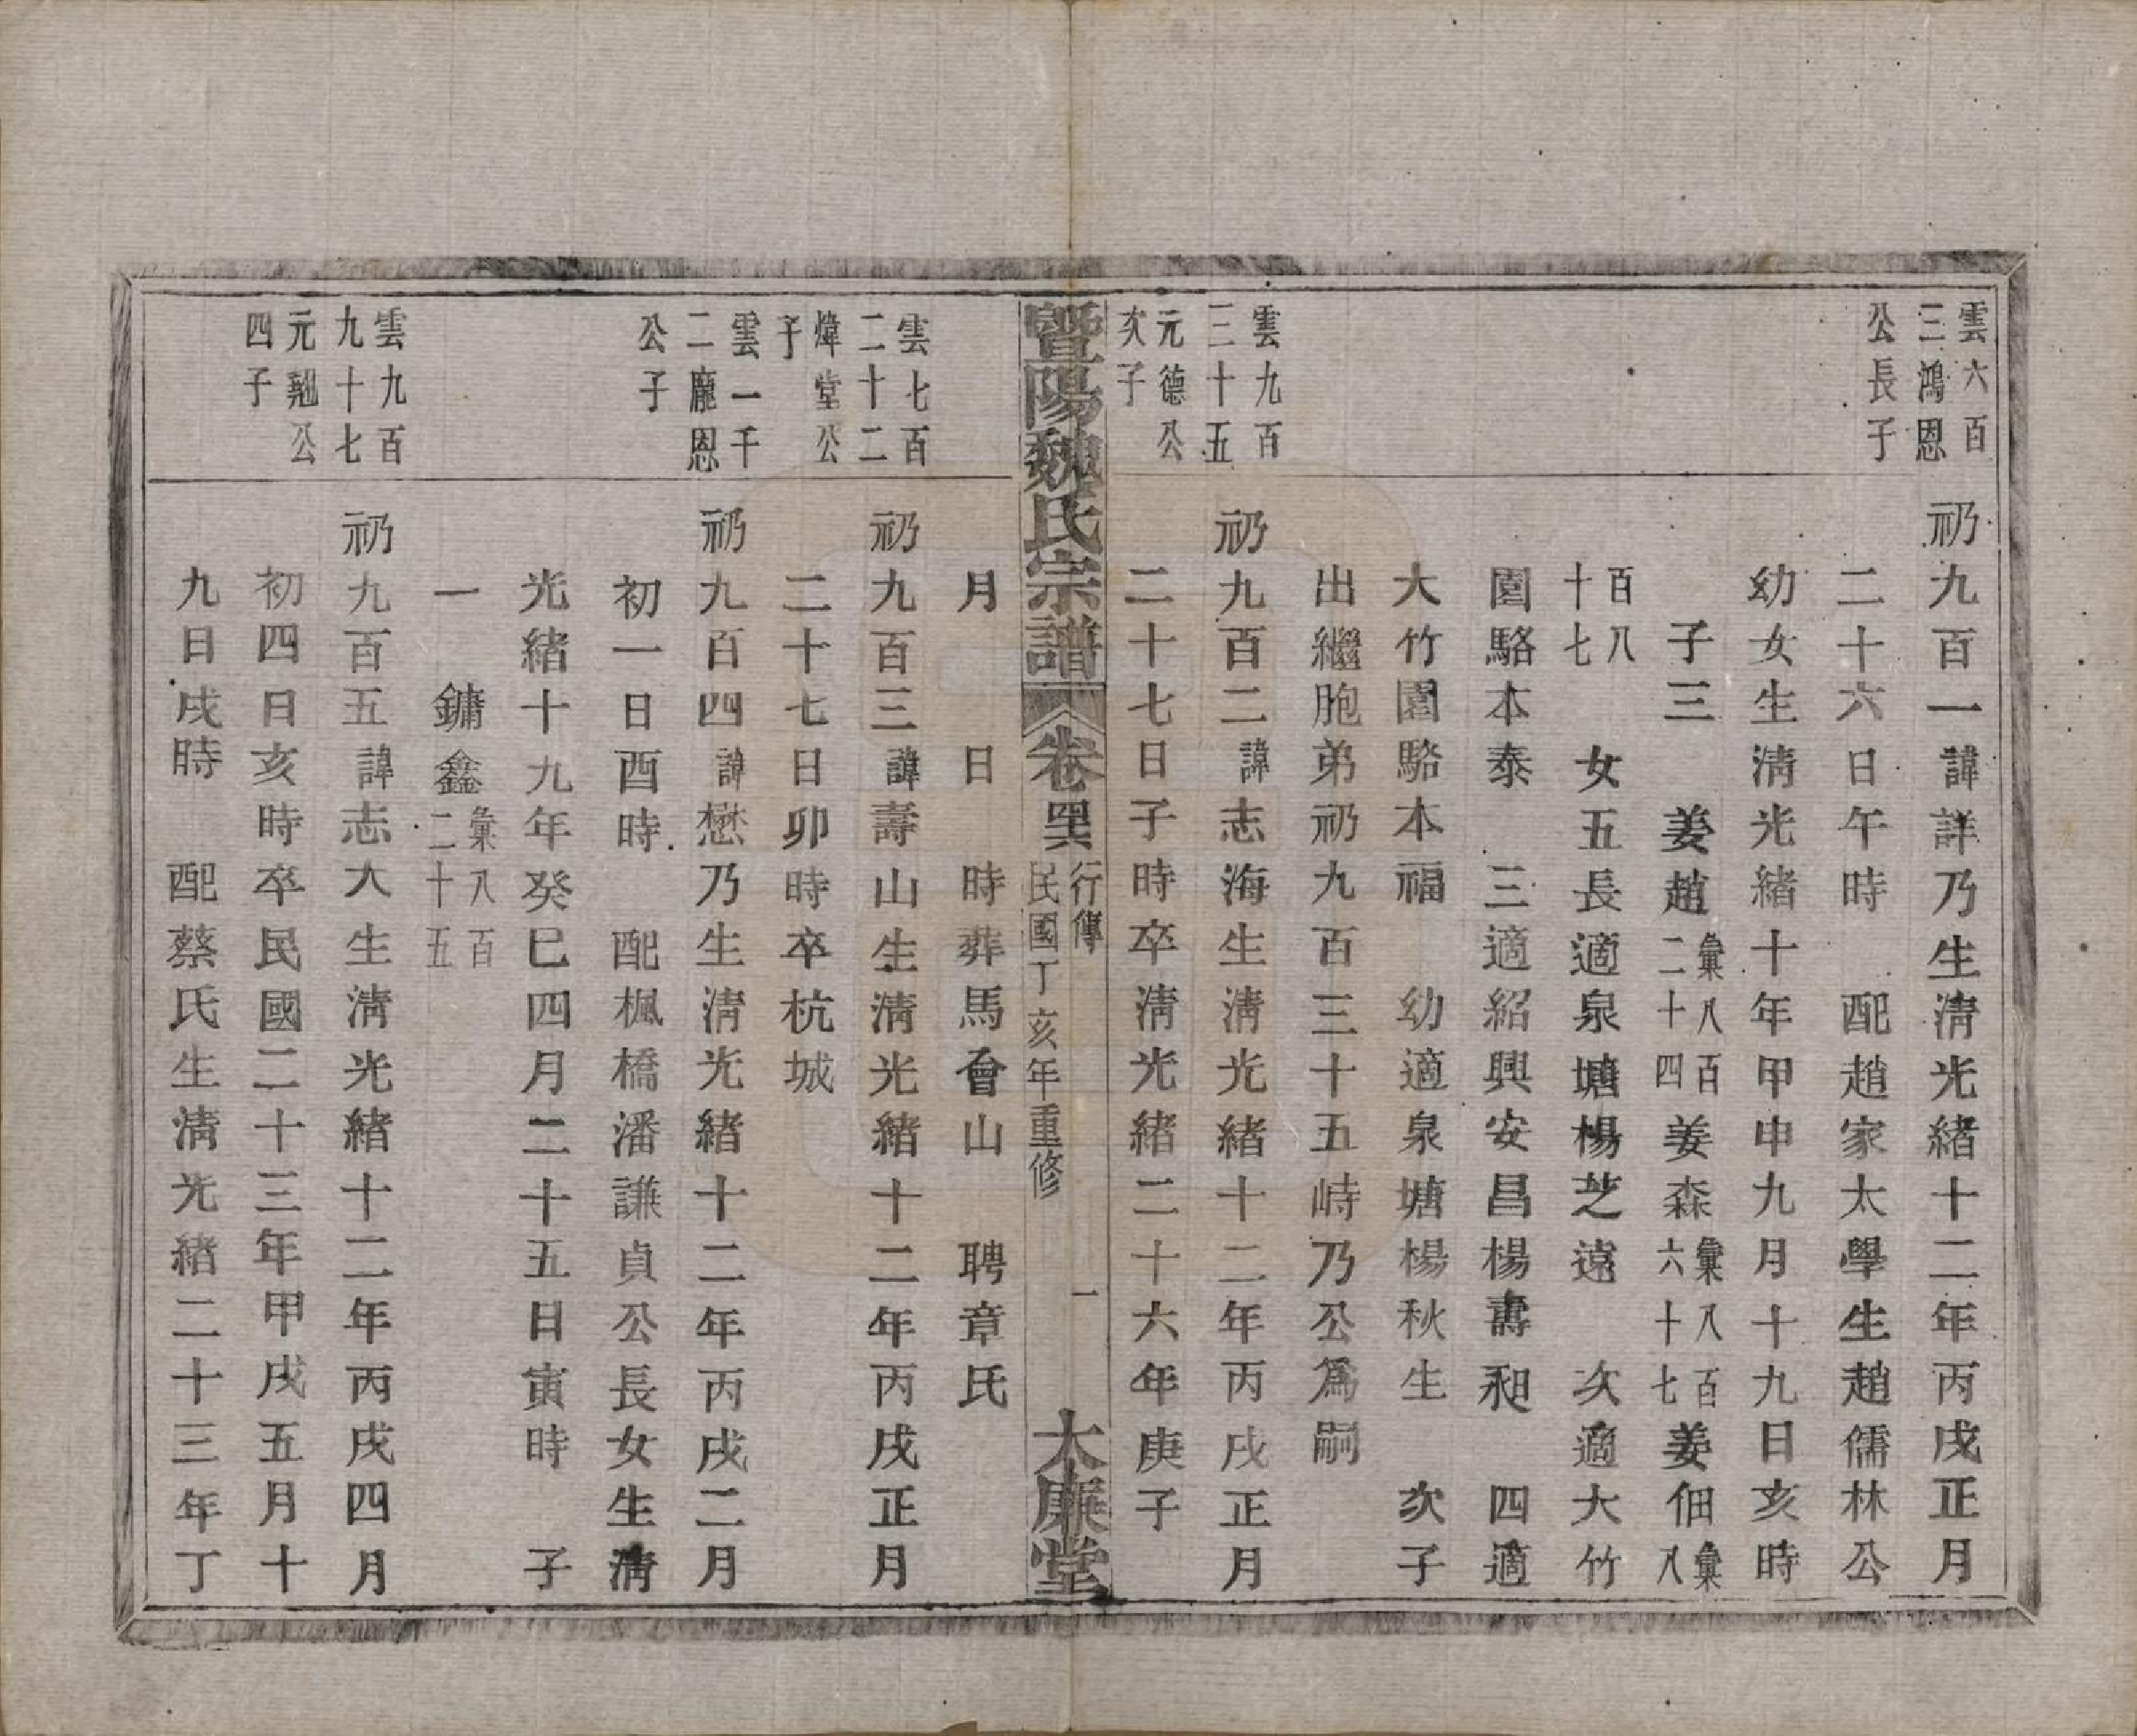 雲六百
三鴻恩
公長子
礽九百一諱詳乃生淸光緒十二年丙戌正月
二十六日午時　配趙家太學生趙儒林公
幼女生淸光緒十年甲申九月十九日亥時
子三　姜趙彙八百二十四姜森彙八百六十七姜佃彙八
百八十七　女五長適泉塘楊芝遠　次適大竹
園駱本泰　三適紹興安昌楊壽和　四適
大竹園駱本福　幼適泉塘楊秋生　次子
出繼胞弟礽九百三十五峙乃公爲嗣
雲九百
三十五
元德公
次子
礽九百二諱志海生淸光緒十二年丙戌正月
二十七日子時卒淸光緒二十六年庚子
暨陽魏氏宗譜
卷
行傳
民國丁亥年重修
一
大廉堂
月　日　時葬馬會山　聘章氏
雲七百
二十二
煒堂公
子
礽九百三諱壽山生淸光緒十二年丙戌正月
二十七日卯時卒杭城
雲一千
二龐恩
公子
礽九百四諱懋乃生淸光緒十二年丙戌二月
初一日酉時　配楓橋潘謙貞公長女生淸
光緒十九年癸巳四月二十五日寅時　子
一　鏞鑫彙八百二十五
雲九百
九十七
元翹公
四子
礽九百五諱志大生淸光緒十二年丙戌四月
初四日亥時卒民國二十三年甲戌五月十
九日戌時　配蔡氏生淸光緒二十三年丁